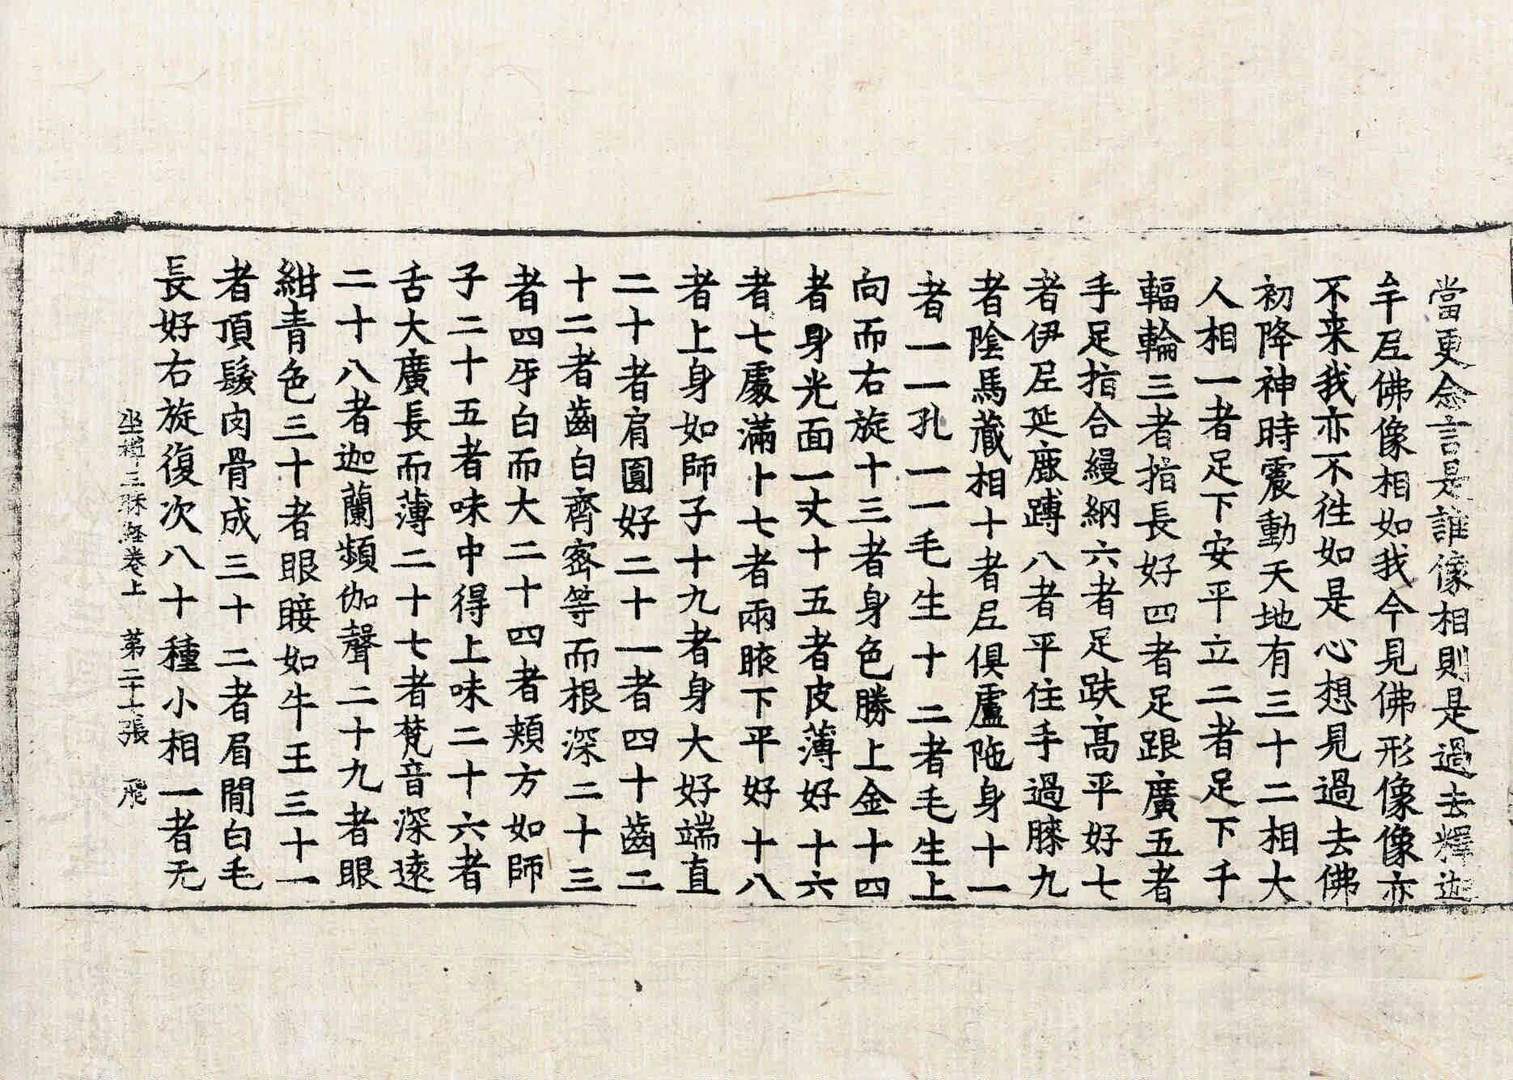 當更念言是誰像相則是過去釋迦
牟尼佛像相如我今見佛形像像亦
不来我亦不往如是心想見過去佛
初降神時震動天地有三十二相大
人相一者足下安平立二者足下千
輻輪三者指長好四者足跟廣五者
手足指合縵網六者足趺高平好七
者伊尼延鹿𨄔八者平住手過膝九
者陰馬藏相十者尼俱盧陁身十一
者一一孔一一毛生十二者毛生上
向而右旋十三者身色勝上金十四
者身光面一丈十五者皮薄好十六
者七處滿十七者兩腋下平好十八
者上身如師子十九者身大好端直
二十者肩圓好二十一者四十齒二
十二者齒白齊密等而根深二十三
者四牙白而大二十四者頰方如師
子二十五者味中得上味二十六者
舌大廣長而薄二十七者梵音深遠
二十八者迦蘭頻伽聲二十九者眼
紺青色三十者眼睫如牛王三十一
者頂髮肉骨成三十二者眉間白毛
長好右旋復次八十種小相一者无
坐禪三昧経卷上 第二十張 飛